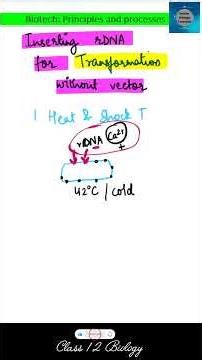 Biotech: Principles and processes
Inserting rDNA
for Transformation
without vector
1 Heat & Shock T
rDNA Ca2+
+
42°C / cold
Class 12 Biology